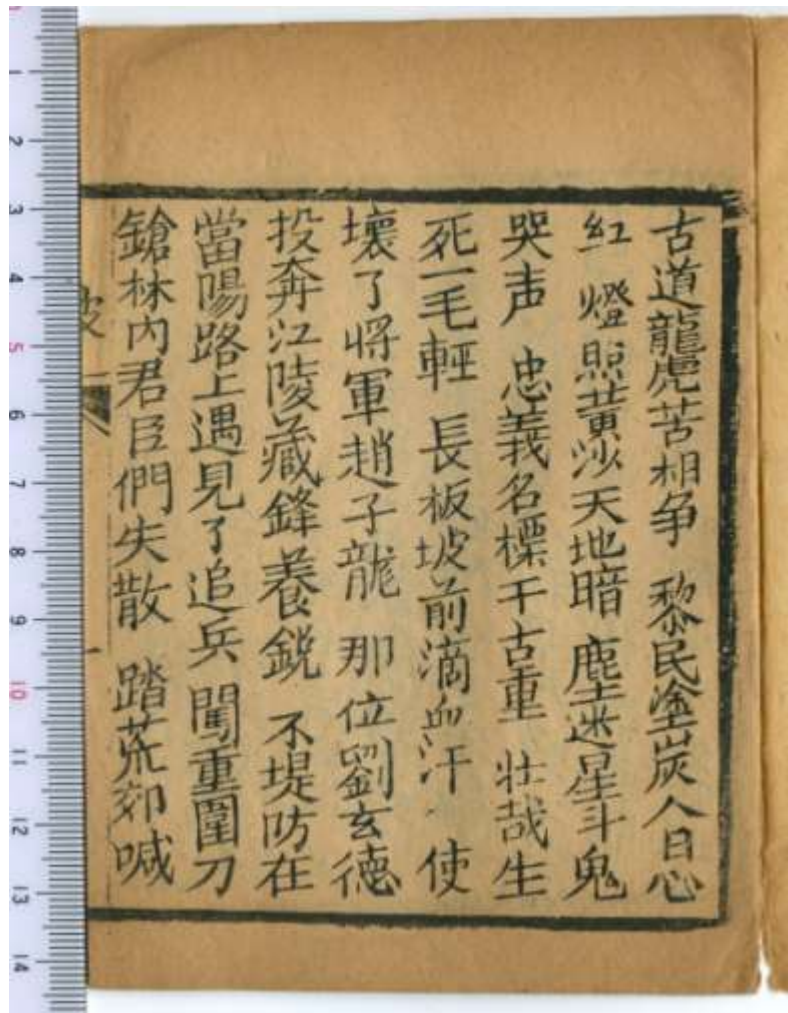 古道龍虎苦相争 黎民塗炭人日心
紅 燈照黃沙天地暗 塵迷星斗鬼
哭声 忠義名標千古重 壮哉生
死一毛輕 長板坡前滴血汗 使
壞了将軍趙子龍 那位劉玄德
投奔江陵藏鋒養鋭 不堤防在
當陽路上遇見了追兵 闖重圍刀
鎗林内君臣們失散 踏荒郊喊
坡
一